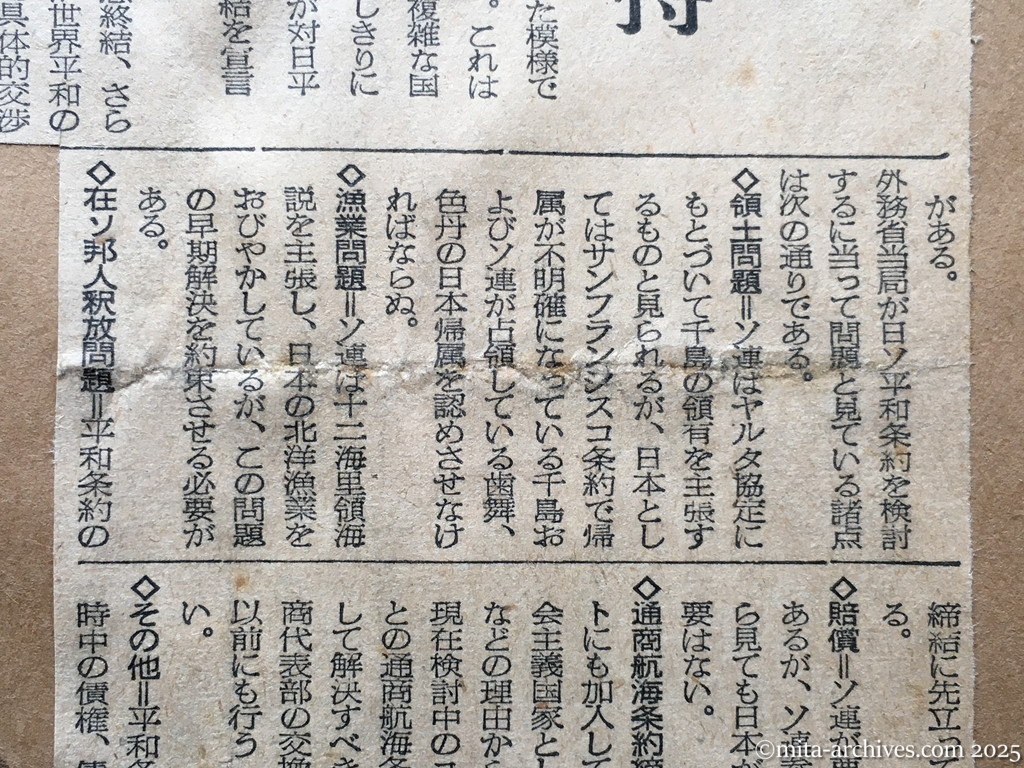 持
た模様で
。これは
複雑な国
しきりに
が対日平
結を宣言
終結、さら
世界平和の
具体的交渉
がある。
外務省当局が日ソ平和条約を検討
するに当って問題と見ている諸点
は次の通りである。
◇領土問題＝ソ連はヤルタ協定に
もとづいて千島の領有を主張す
るものと見られるが、日本とし
てはサンフランシスコ条約で帰
属が不明確になっている千島お
よびソ連が占領している歯舞、
色丹の日本帰属を認めさせなけ
ればならぬ。
◇漁業問題＝ソ連は十二海里領海
説を主張し、日本の北洋漁業を
おびやかしているが、この問題
の早期解決を約束させる必要が
ある。
◇在ソ邦人釈放問題＝平和条約の
締結に先立って
る。
◇賠償＝ソ連が要
あるが、ソ連
ら見ても日本が
要はない。
◇通商航海条約締
トにも加入して
会主義国家とし
などの理由から
現在検討中の
との通商航海条
して解決すべき
商代表部の交換
以前にも行う
い。
◇その他＝平和条
時中の債権、債
©mita-archives.com 2025